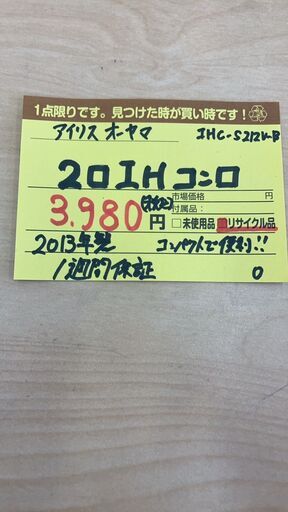 1点限りです。見つけた時が買い時です！
アイリスオーヤマ IHC-S212V-B
2口IHコンロ
市場価格 円
3,980円(税込)
付属品：
□未使用品 ■リサイクル品
2013年製 コンパクトで便利!!
1週間保証 0